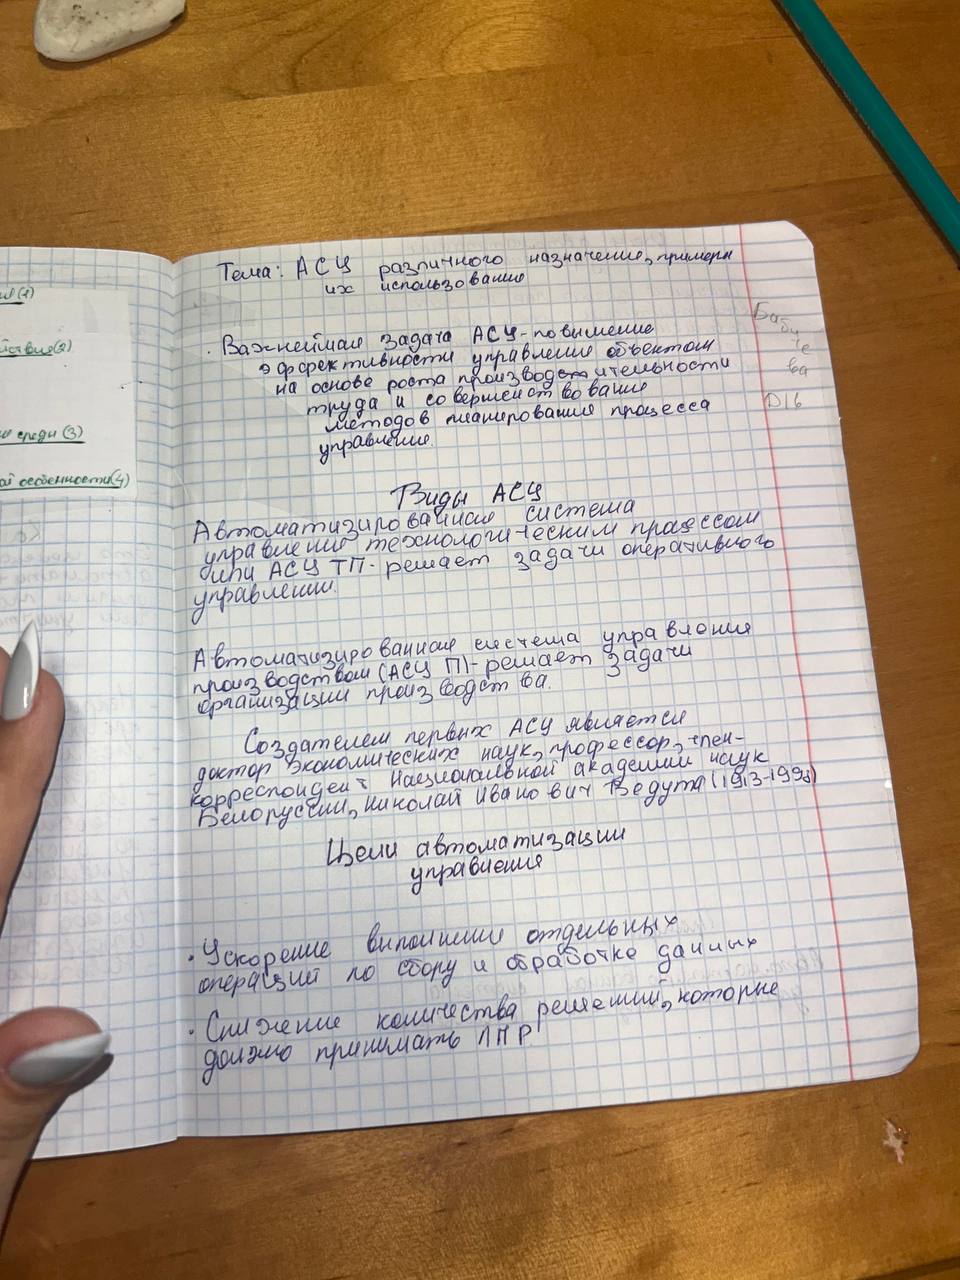 Тема: АСУ различного назначения, примеры
их использования
Бабичева
D16
· Важнейшая задача АСУ-повышение
эффективности управления объектом
на основе роста производительности
труда и совершенствование
методов планирования процесса
управления.
Виды АСУ
Автоматизированная система
управления технологическим процессом
или АСУ ТП-решает задачи оперативного
управления.
Автоматизированная система управления
производством (АСУ П)-решает задачи
организации производства.
Создателем первых АСУ является
доктор экономических наук, профессор, член-
корреспондент Национальной академии наук
Белоруссии, Николай Иванович Ведута (1913-1998)
Цели автоматизации
управления
· Ускорение выполнения отдельных
операций по сбору и обработке данных
· Снижение количества решений, которые
должно принимать ЛПР
(1)
действия(2)
среды (3)
особенности(4)